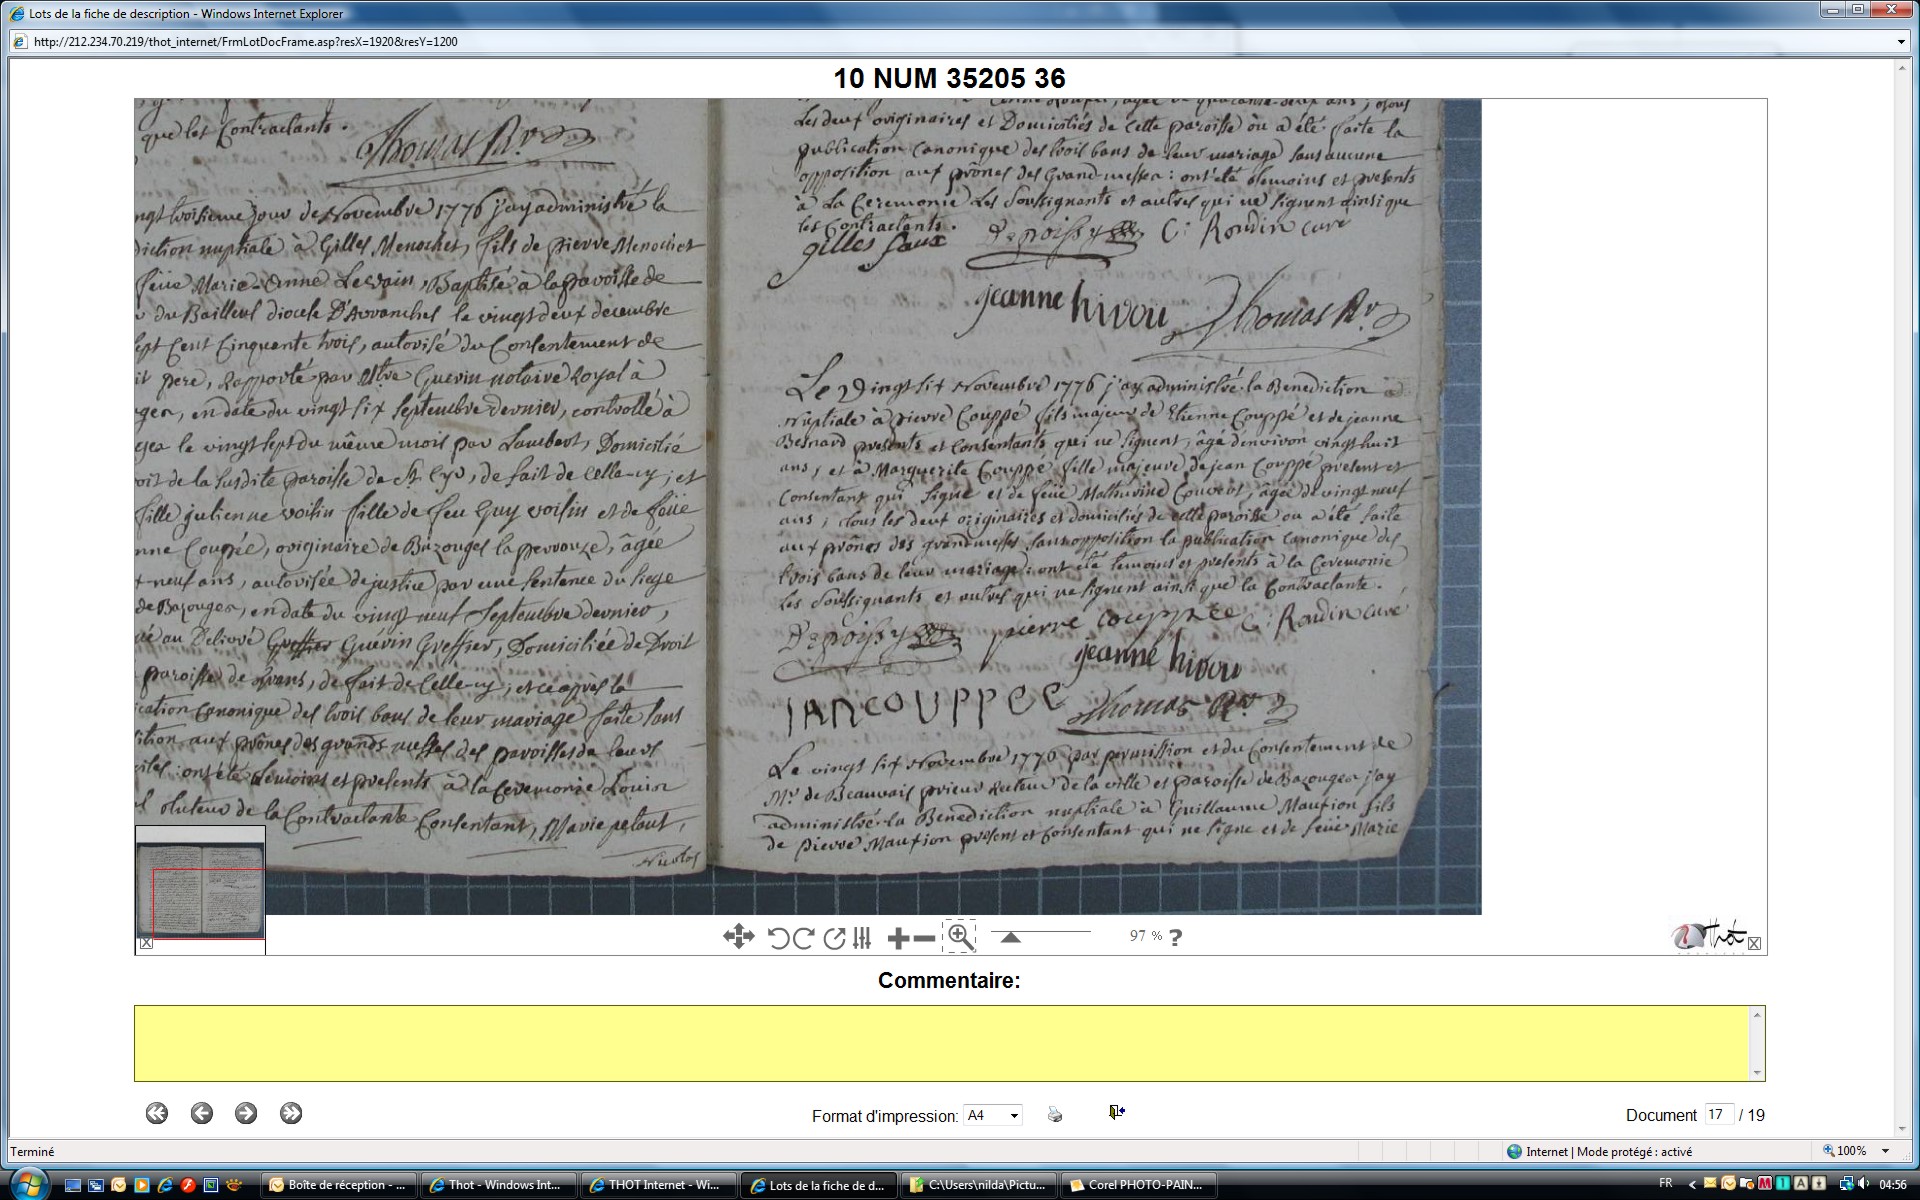 Lots de la fiche de description - Windows Internet Explorer
http://212.234.70.219/thot_internet/FrmLotDocFrame.asp?resX=1920&resY=1200
10 NUM 35205 36
que les Contractants.
Thomas Rr
ngt troisieme jour de Novembre 1776 j'ay administré la
diction nuptiale à Gilles Menochet, fils de pierre Menochet
feüe Marie-Anne Lesvain, Baptisé à la paroisse de
du Bailleul diocese D'Avranches le vingt deux decembre
sept Cent Cinquante trois, autorisé du Consentement de
it pere, Rapporté par Mtre Guerin notaire Royal à
ger, en date du vingt six septembre dernier, controllé à
ges le vingt sept du même mois par Lambert, Domicilié
oit de la susdite paroisse de St Cyr, de fait de Celle-cy; et
fille julienne voisin fille de feu Guy voisin et de feüe
nne Couppée, originaire de Bazouges la perrouze, âgée
t-neuf ans, autorisée de justice par une sentence du siege
de Bazouges, en date du vingt neuf Septembre dernier,
au Délivré Greffier Guérin Greffier, Domiciliée de Droit
paroisse de , de fait de Celle-cy, et ce après la
ication Canonique des trois bans de leur mariage faite sans
ition aux prônes des grands messes des paroisses de leurs
ciles: ont été temoins et presents à la Ceremonie Louis
tuteur de la Contractante Consentant, Marie petout,
Nicolas
Les deux originaires et Domiciliés de Cette paroisse où a été faite la
publication Canonique des trois bans de leur mariage sans aucune
opposition aux prônes des Grand-messes: ont été temoins et presents
à La Ceremonie Les Soussignants et autres qui ne signent ainsi que
les Contractants.
gilles faux Depoissy C: Roudin curé
jeanne hivou Thomas Rr
Le Vingt six Novembre 1776 j'ay administré la Benediction
nuptiale à pierre Couppé fils majeur de Etienne Couppé et de jeanne
Besnard presents et Consentants qui ne signent, âgé d'environ vingt huit
ans, et à Marguerite Couppé fille majeure de jean Couppé present et
Consentant qui signe et de feüe Mathurine Couvert, âgée de vingt neuf
ans, tous les deux originaires et domiciliés de cette paroisse ou a été faite
aux prônes des grandmesses sans opposition la publication canonique des
trois bans de leur mariage: ont été temoins et presents à la Ceremonie
Les Soussignants et autres qui ne signent ainsi que la Contractante.
Depoissy pierre couppée C: Roudin curé
jeanne hivou
IANCOUPPEE Thomas Rr
Le vingt six Novembre 1776 par permission et du Consentement de
Mr. de Beauvais prieur Recteur de la ville et paroisse de Bazouges j'ay
administré la Benediction nuptiale à Guillaume Maution fils
de pierre Maution present et Consentant qui ne signe et de feüe Marie
97 % ?
Thot
Commentaire:
Format d'impression: A4
Document 17 / 19
Terminé
Internet | Mode protégé : activé
100%
Boîte de réception - ...
Thot - Windows Int...
THOT Internet - Wi...
Lots de la fiche de d...
C:\Users\nilda\Pictu...
Corel PHOTO-PAIN...
FR
04:56